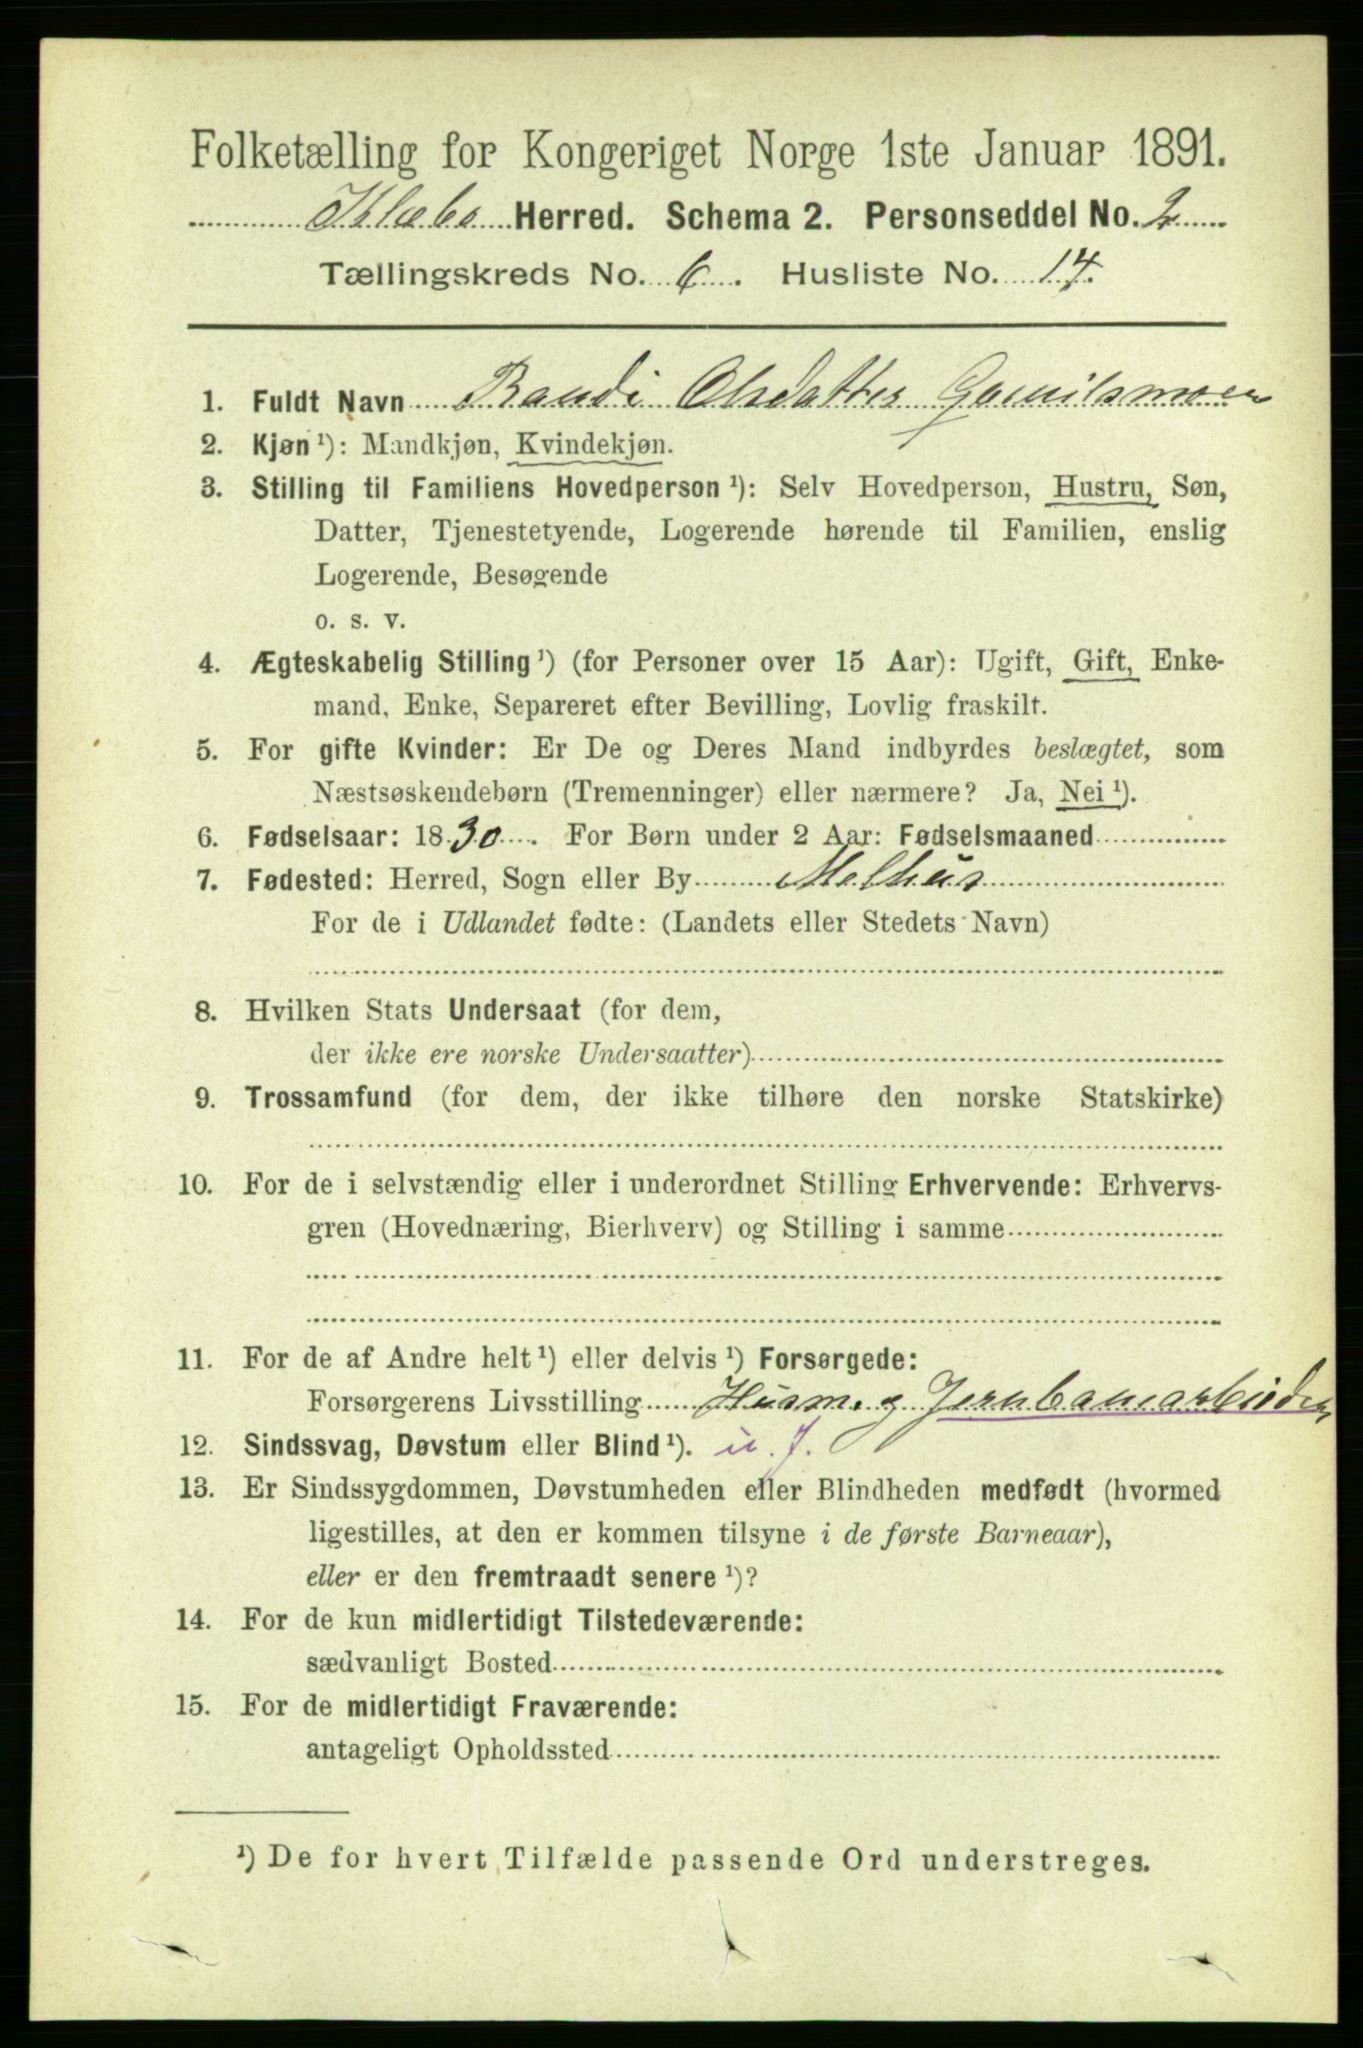 Folketælling for Kongeriget Norge 1ste Januar 1891.
Klæbo Herred. Schema 2. Personseddel No. 2
Tællingskreds No. 6. Husliste No. 14.
1. Fuldt Navn Randi Olsdatter Gamilsmoen
2. Kjøn ¹): Mandkjøn, Kvindekjøn.
3. Stilling til Familiens Hovedperson ¹): Selv Hovedperson, Hustru, Søn,
Datter, Tjenestetyende, Logerende hørende til Familien, enslig
Logerende, Besøgende
o. s. v.
4. Ægteskabelig Stilling ¹) (for Personer over 15 Aar): Ugift, Gift, Enke-
mand, Enke, Separeret efter Bevilling, Lovlig fraskilt.
5. For gifte Kvinder: Er De og Deres Mand indbyrdes beslægtet, som
Næstsøskendebørn (Tremenninger) eller nærmere? Ja, Nei ¹).
6. Fødselsaar: 1830. For Børn under 2 Aar: Fødselsmaaned
7. Fødested: Herred, Sogn eller By Melhus
For de i Udlandet fødte: (Landets eller Stedets Navn)
8. Hvilken Stats Undersaat (for dem,
der ikke ere norske Undersaatter)
9. Trossamfund (for dem, der ikke tilhøre den norske Statskirke)
10. For de i selvstændig eller i underordnet Stilling Erhvervende: Erhvervs-
gren (Hovednæring, Bierhverv) og Stilling i samme
11. For de af Andre helt ¹) eller delvis ¹) Forsørgede:
Forsørgerens Livsstilling Husm. g Jernbanearbeider
12. Sindssvag, Døvstum eller Blind ¹). u. J.
13. Er Sindssygdommen, Døvstumheden eller Blindheden medfødt (hvormed
ligestilles, at den er kommen tilsyne i de første Barneaar),
eller er den fremtraadt senere ¹)?
14. For de kun midlertidigt Tilstedeværende:
sædvanligt Bosted
15. For de midlertidigt Fraværende:
antageligt Opholdssted
¹) De for hvert Tilfælde passende Ord understreges.